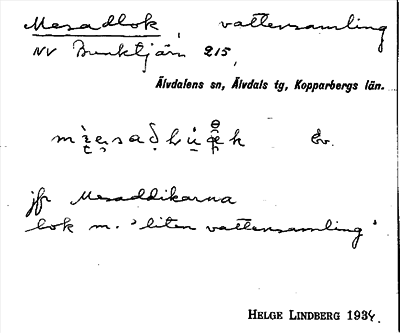 Mesadlok, vattensamling
NV Brunktjärn 215,
Älvdalens sn, Älvdals tg, Kopparbergs län.
Ev.
jfr Mesaddikarna
lok m. 'liten vattensamling'
HELGE LINDBERG 1934.